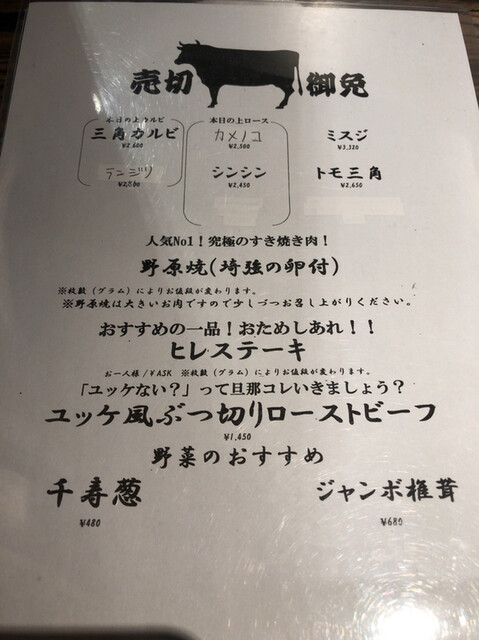 売切 御免
本日の上カルビ
三角カルビ
¥2,600
テンジリ
本日の上ロース
カメノコ
¥2,500
シンシン
¥2,650
ミスジ
¥3,320
トモ三角
¥2,650
人気No1！究極のすき焼き肉！
野原焼(琦強の卵付)
※枚数（グラム）によりお値段が変わります。
※野原焼は大きいお肉ですので少しづつお召し上がりください。
おすすめの一品！おためしあれ！！
ヒレステーキ
お一人様/¥ASK ※枚数（グラム）によりお値段が変わります。
「ユッケない？」って旦那コレいきましょう？
ユッケ風ぶつ切りローストビーフ
¥1,450
野菜のおすすめ
千寿葱
¥480
ジャンボ椎茸
¥680